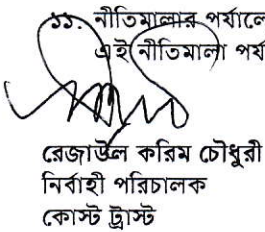 ১১. নীতিমালার পর্যালো
এই নীতিমালা পর্যা
রেজাউল করিম চৌধুরী
নির্বাহী পরিচালক
কোস্ট ট্রাস্ট